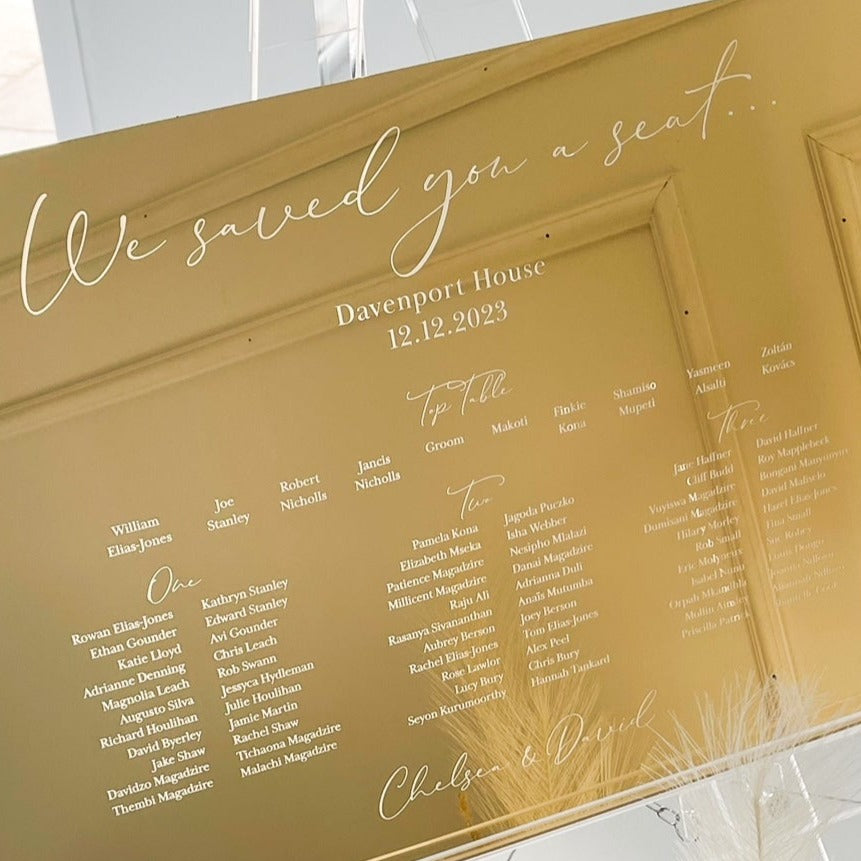 We saved you a seat...
Davenport House
12.12.2023
Top Table
William Elias-Jones
Joe Stanley
Robert Nicholls
Jancis Nicholls
Groom
Makoti
Finkie Kona
Shamiso Mupeti
Yasmeen Alsalti
Zoltán Kovács
One
Rowan Elias-Jones
Ethan Gounder
Katie Lloyd
Adrianne Denning
Magnolia Leach
Augusto Silva
Richard Houlihan
David Byerley
Jake Shaw
Davidzo Magadzire
Thembi Magadzire
Kathryn Stanley
Edward Stanley
Avi Gounder
Chris Leach
Rob Swann
Jessyca Hydleman
Julie Houlihan
Jamie Martin
Rachel Shaw
Tichaona Magadzire
Malachi Magadzire
Two
Pamela Kona
Elizabeth Mseka
Patience Magadzire
Millicent Magadzire
Raju Ali
Rasanya Sivananthan
Aubrey Berson
Rachel Elias-Jones
Rose Lawlor
Lucy Bury
Seyon Kurumoorthy
Jagoda Puczko
Isha Webber
Nesipho Mlalazi
Danai Magadzire
Adrianna Duli
Anaïs Mutumba
Joey Berson
Tom Elias-Jones
Alex Peel
Chris Bury
Hannah Tankard
Three
Jane Haffner
Cliff Budd
Vuyiswa Magadzire
Dumisani Magadzire
Hilary Morley
Rob Small
Eric Molyneux
Isabel
Orpah
Priscilla
David Haffner
Roy Mapplebeck
Bongani Manyonyni
David Mafuelo
Hazel Elias-Jones
Tina Small
Chelsea & David